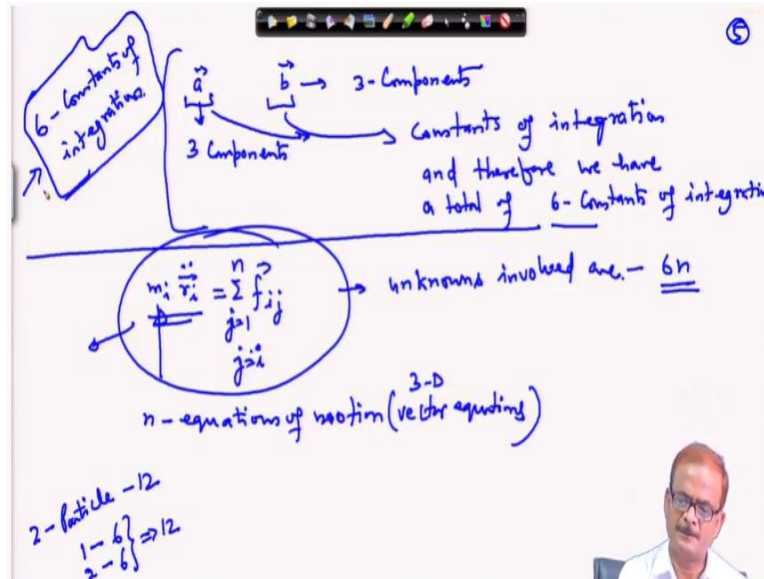 ⑤
6-Constants of
integration.
a⃗ b⃗ → 3-Components
3 Components
Constants of integration
and therefore we have
a total of 6-Constants of integratio
mᵢ r̈ᵢ = Σ f⃗ᵢⱼ → unknowns involved are.- 6n
n
j=1
j=i
3-D
n-equations of motion (vector equations)
2-Particle-12
1-6} ⇒ 12
2-6}